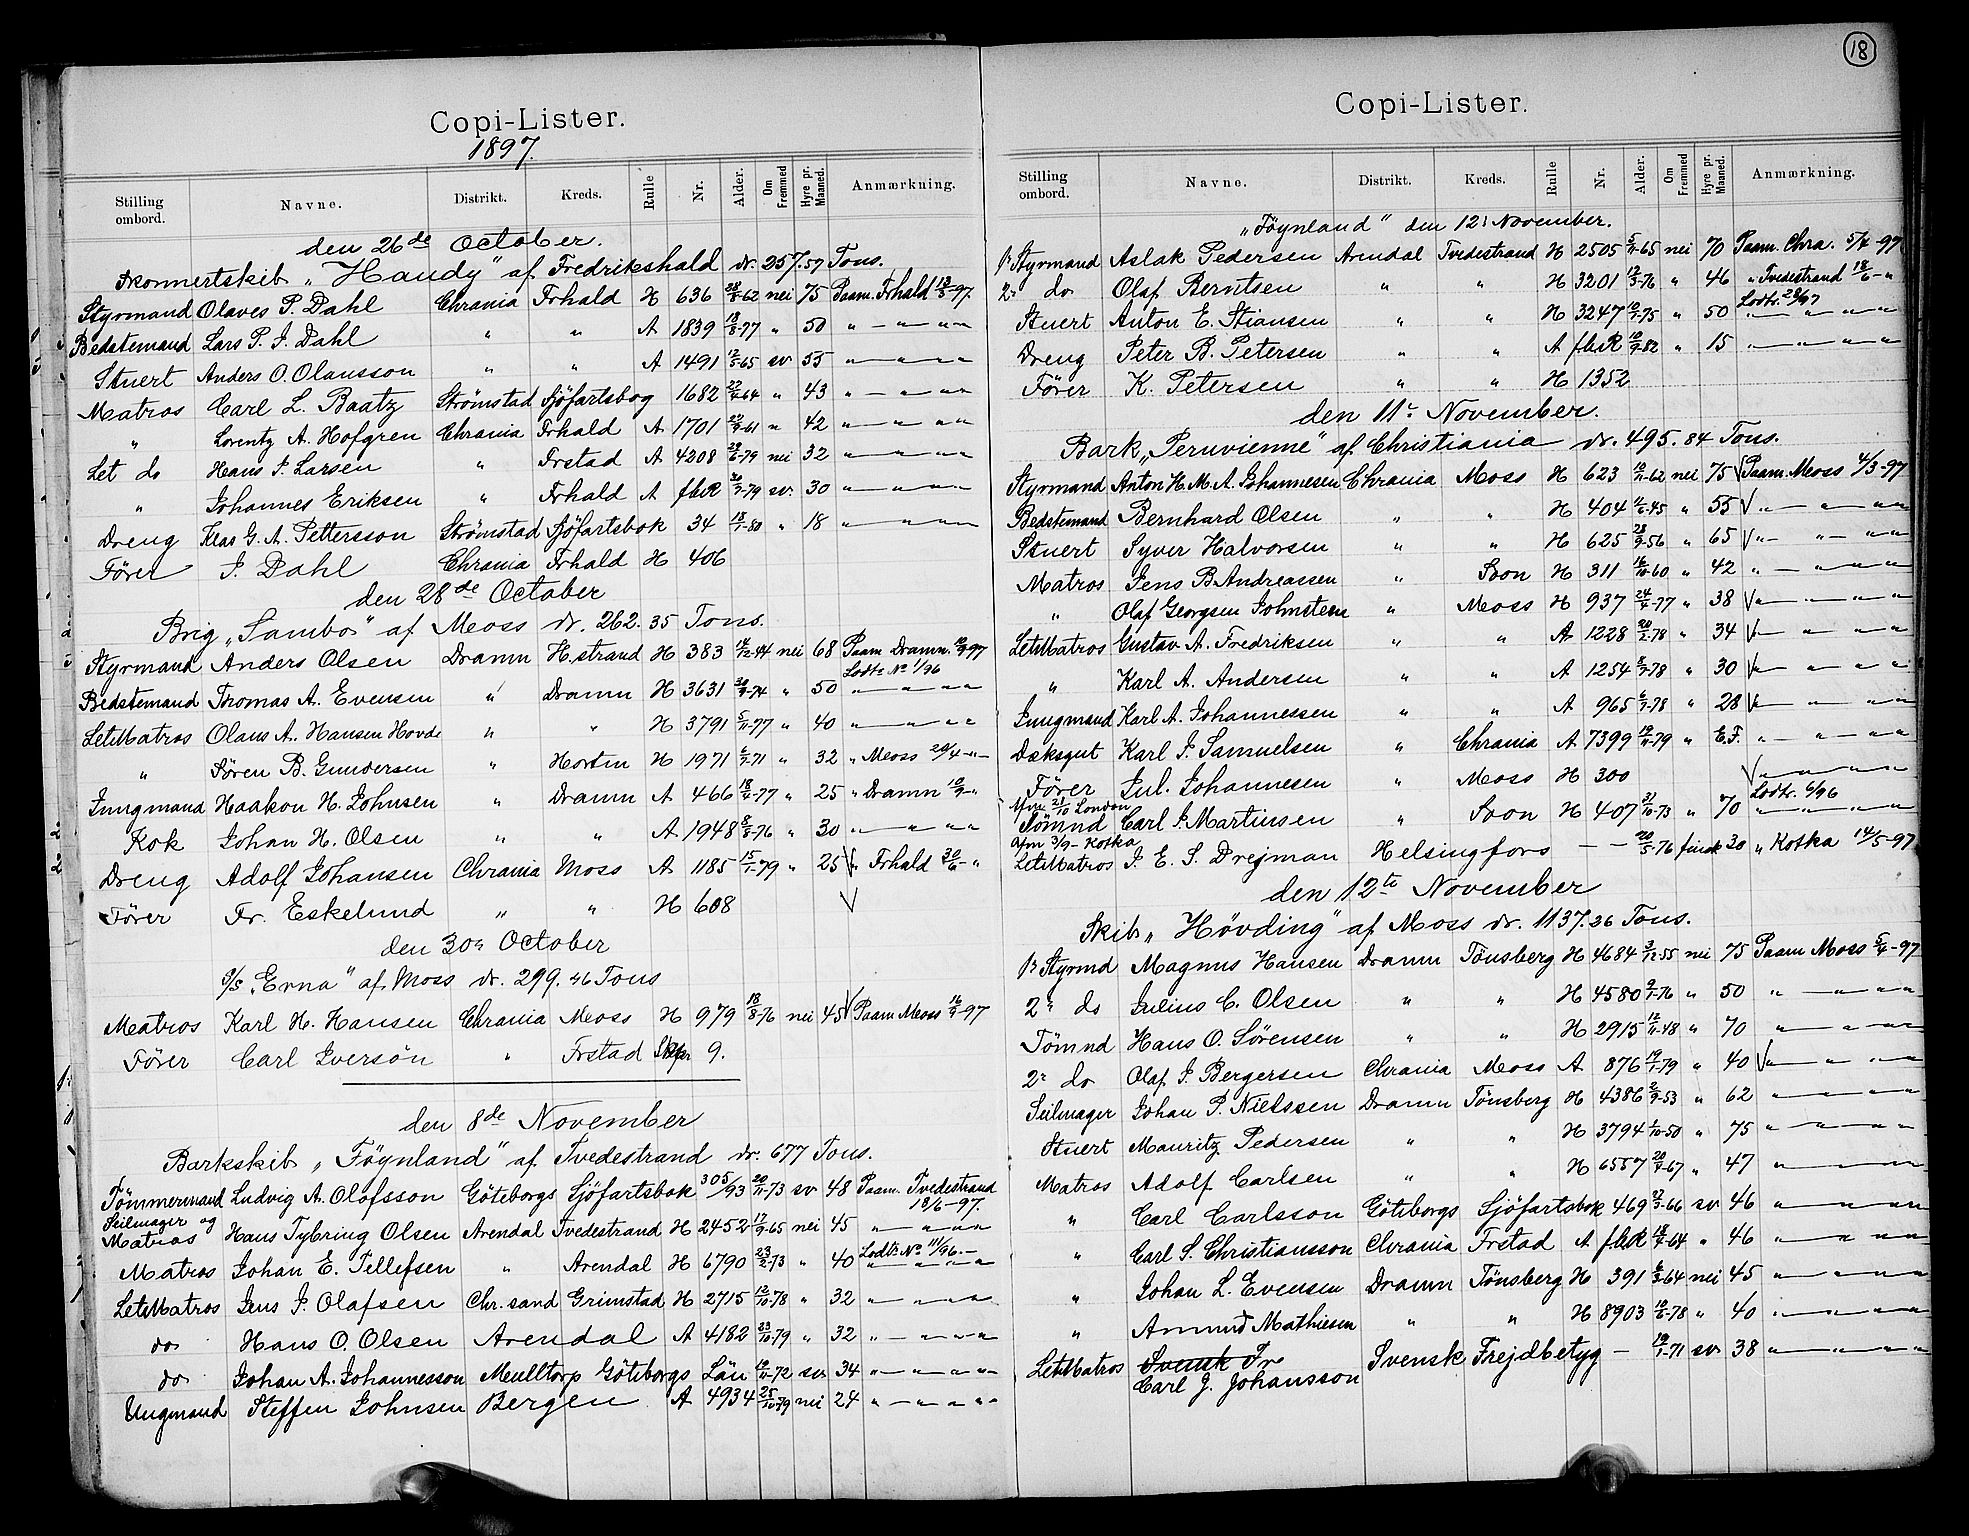 Copi-Lister.
1897.
Stilling ombord. Navne. Distrikt. Kreds. Rulle Nr. Alder. Om Fremmed Hyre pr. Maaned. Anmærkning.
den 26de October.
Skonnertskib "Handy" af Fredrikshald dr. 257.57 Tons.
Styrmand Olaves P. Dahl Chrania Frhald H 636 28/8-62 nei 75 Paam. Frhald 13/8-97.
Bedstemand Lars P. J. Dahl " " A 1839 18/8-77 " 50 " — " — " "
Stuert Anders O. Olausson " " A 1491 12/5-65 sv 55 " — " "
Matros Carl L. Baatz Strømstad Sjöfartsbog 1682 22/4-64 " 43 " — " — " "
" Lorentz A. Hofgren Chrania Frhald A 1701 29/9-61 " 42 " — " — " "
Let do Hans J. Larsen " Frstad A 4208 29/6-79 nei 32 " — " — " "
" Johannes Eriksen " Frhald A fbR 30/7-79 sv. 30 " — " — " "
Dreng Klas G. A. Pettersson Strømstad Sjöfartsbok 34 18/1-80 " 18 " — " — " "
Fører J. Dahl Chrania Frhald H 406
den 28de October
Brig "Sambo" af Moss dr. 262.35 Tons.
Styrmand Anders Olsen Dramn H.strand H 383 14/12-44 nei 68 Paam Dramn. 12/9-97
Lodtr. No 1/96
Bedstemand Thomas A. Evensen " Dramn H 3631 30/9-74 " 50 " — " — " "
LetMatros Olaus A. Hansen Hovde " " H 3791 5/11-77 " 40 " — " — " "
" Søren B. Gundersen " Horten H 1971 6/7-71 " 32 " Moss 20/4 - " -
Jungmand Haakon H. Johnsen " Dramn A 466 18/4-77 " 25 " Dramn 10/9 - "
Kok Johan H. Olsen " " A 1948 8/8-76 " 30 " — " — " "
Dreng Adolf Johansen Chrania Moss A 1185 15/1-79 " 25 √ " Frhald 30/6 - "
Fører Fr. Eskelund " " H 608 √
den 30" October
S/S "Erna" af Moss dr. 299.46 Tons
Matros Karl H. Hansen Chrania Moss H 979 18/8-76 nei 45 √ Paam Moss 16/9-97
Fører Carl Iversøn " Frstad Skpr 9.
den 8de November
Barkskib "Föynland" af Tvedestrand dr. 677 Tons.
Tömmermand Ludvig A. Olofsson Göteborgs Sjöfartsbok 305/93 20/11-73 sv 48 Paam. Tvedestrand
18/6-97.
Seilmager og
Matros Hans Tybring Olsen Arendal Tvedestrand H 2452 17/9-65 nei 45 " — " — " "
Lodtr. No 11/96.—
Matros Johan E. Tellefsen " Arendal H 6790 23/2-73 " 40 " — " — " "
LetMatros Jens J. Olafsen Chr.sand Grimstad H 2715 12/10-78 " 32 " — " — " "
do Hans O. Olsen Arendal A 4182 23/10-79 " 32 " — " — " "
do Johan A. Johannesson Meulltorp Göteborgs Län 19/11-72 sv 34 " — " — " "
Ungmand Steffen Johnsen Bergen A 4934 25/10-79 nei 24 " — " — " "
18
Copi-Lister.
Stilling ombord. Navne. Distrikt. Kreds. Rulle Nr. Alder. Om Fremmed Hyre pr. Maaned. Anmærkning.
"Föynland" den 12' November.
1ste Styrmand Aslak Pedersen Arendal Tvedestrand H 2505 5/11-65 nei 70 Paam. Chra. 5/4-97
2" do Olaf Berntsen " " H 3201 12/3-76 " 46 " Tvedestrand 18/6 - "
Lodtr. 28/97
Stuert Anton E. Stiansen " " H 3247 10/7-75 " 50 " — " — " "
Dreng Peter B. Petersen " " A fbR 10/9-82 " 15 " — " — " "
Fører K. Petersen " " H 1352
den 11" November.
Bark "Peruvienne" af Christiania dr. 495.84 Tons.
Styrmand Anton H. M. A. Johannesen Chrania Moss H 623 10/11-62 nei 75 √ Paam. Moss 4/3-97
Bedstemand Bernhard Olsen " " H 404 4/6-45 " 55 √ " — " — " "
Stuert Syver Halvorsen " " H 625 28/9-56 " 65 √ " — " — " "
Matros Jens B Andreassen " Soon H 311 16/10-60 " 42 " — " — " "
" Olaf Georgsen Johnsteen " Moss H 937 24/4-77 " 38 √ " — " — " "
LetMatros Gustav A. Fredriksen " " A 1228 20/2-78 " 34 √ — " — " "
" Karl A. Andersen " " A 1254 8/7-78 " 30 √ — " — " "
Jungmand Karl A. Johannessen " " A 965 6/7-78 " 28 √ — " — " "
Dæksgut Karl J. Samuelsen " Chrania A 7399 19/11-79 " E.F. " — " — " "
Fører Jul. Johannesen " Moss H 300 √ " — " — " "
Afm. 21/10 London Lodtr. 6/96
Tömnd Carl J. Martinsen " Soon H 407 31/10-73 " 70 √ " — " — " "
Afm 3/9 - Kotka
LetMatros J. E. S. Drejman Helsingfors — — 20/5-76 finsk 30 " Kotka 14/5-97
den 12te November
Skib "Hövding" af Moss dr. 1137.26 Tons.
1ste Styrmd Magnus Hansen Dramn Tönsberg H 4684 3/12-55 nei 75 Paam Moss 5/4-97
2" do Julius C. Olsen " " H 4580 9/1-76 " 50 " — " — " "
Tömnd Hans O. Sörensen " " H 2915 12/11-48 " 70 " — " — " "
2" do Olaf J. Bergersen Chrania Moss A 876 19/1-79 " 40 √ " — " — " "
Seilmager Johan P. Nielssen Dramn Tönsberg H 4386 2/9-53 " 62 " — " — " "
Stuert Mauritz Pedersen " " H 3794 1/10-50 " 75 " — " — " "
Matros Adolf Carlsen " " H 6557 20/7-67 " 47 " — " — " "
" Carl Carlsson Göteborgs Sjöfartsbok 469 22/3-66 sv 46 " — " — " "
" Carl S. Christiansson Chrania Frstad A fbR 18/4-64 " 46 " — " — " "
" Johan L. Evensen Dramn Tönsberg H 391 6/3-64 nei 45 " — " — " "
" Amund Mathiesen " " H 8903 10/6-78 " 40 " — " — " "
LetMatros Svensk Fr Svensk Frejdbetyg — 19/1-71 sv 38 " — " — " "
Carl J. Johansson